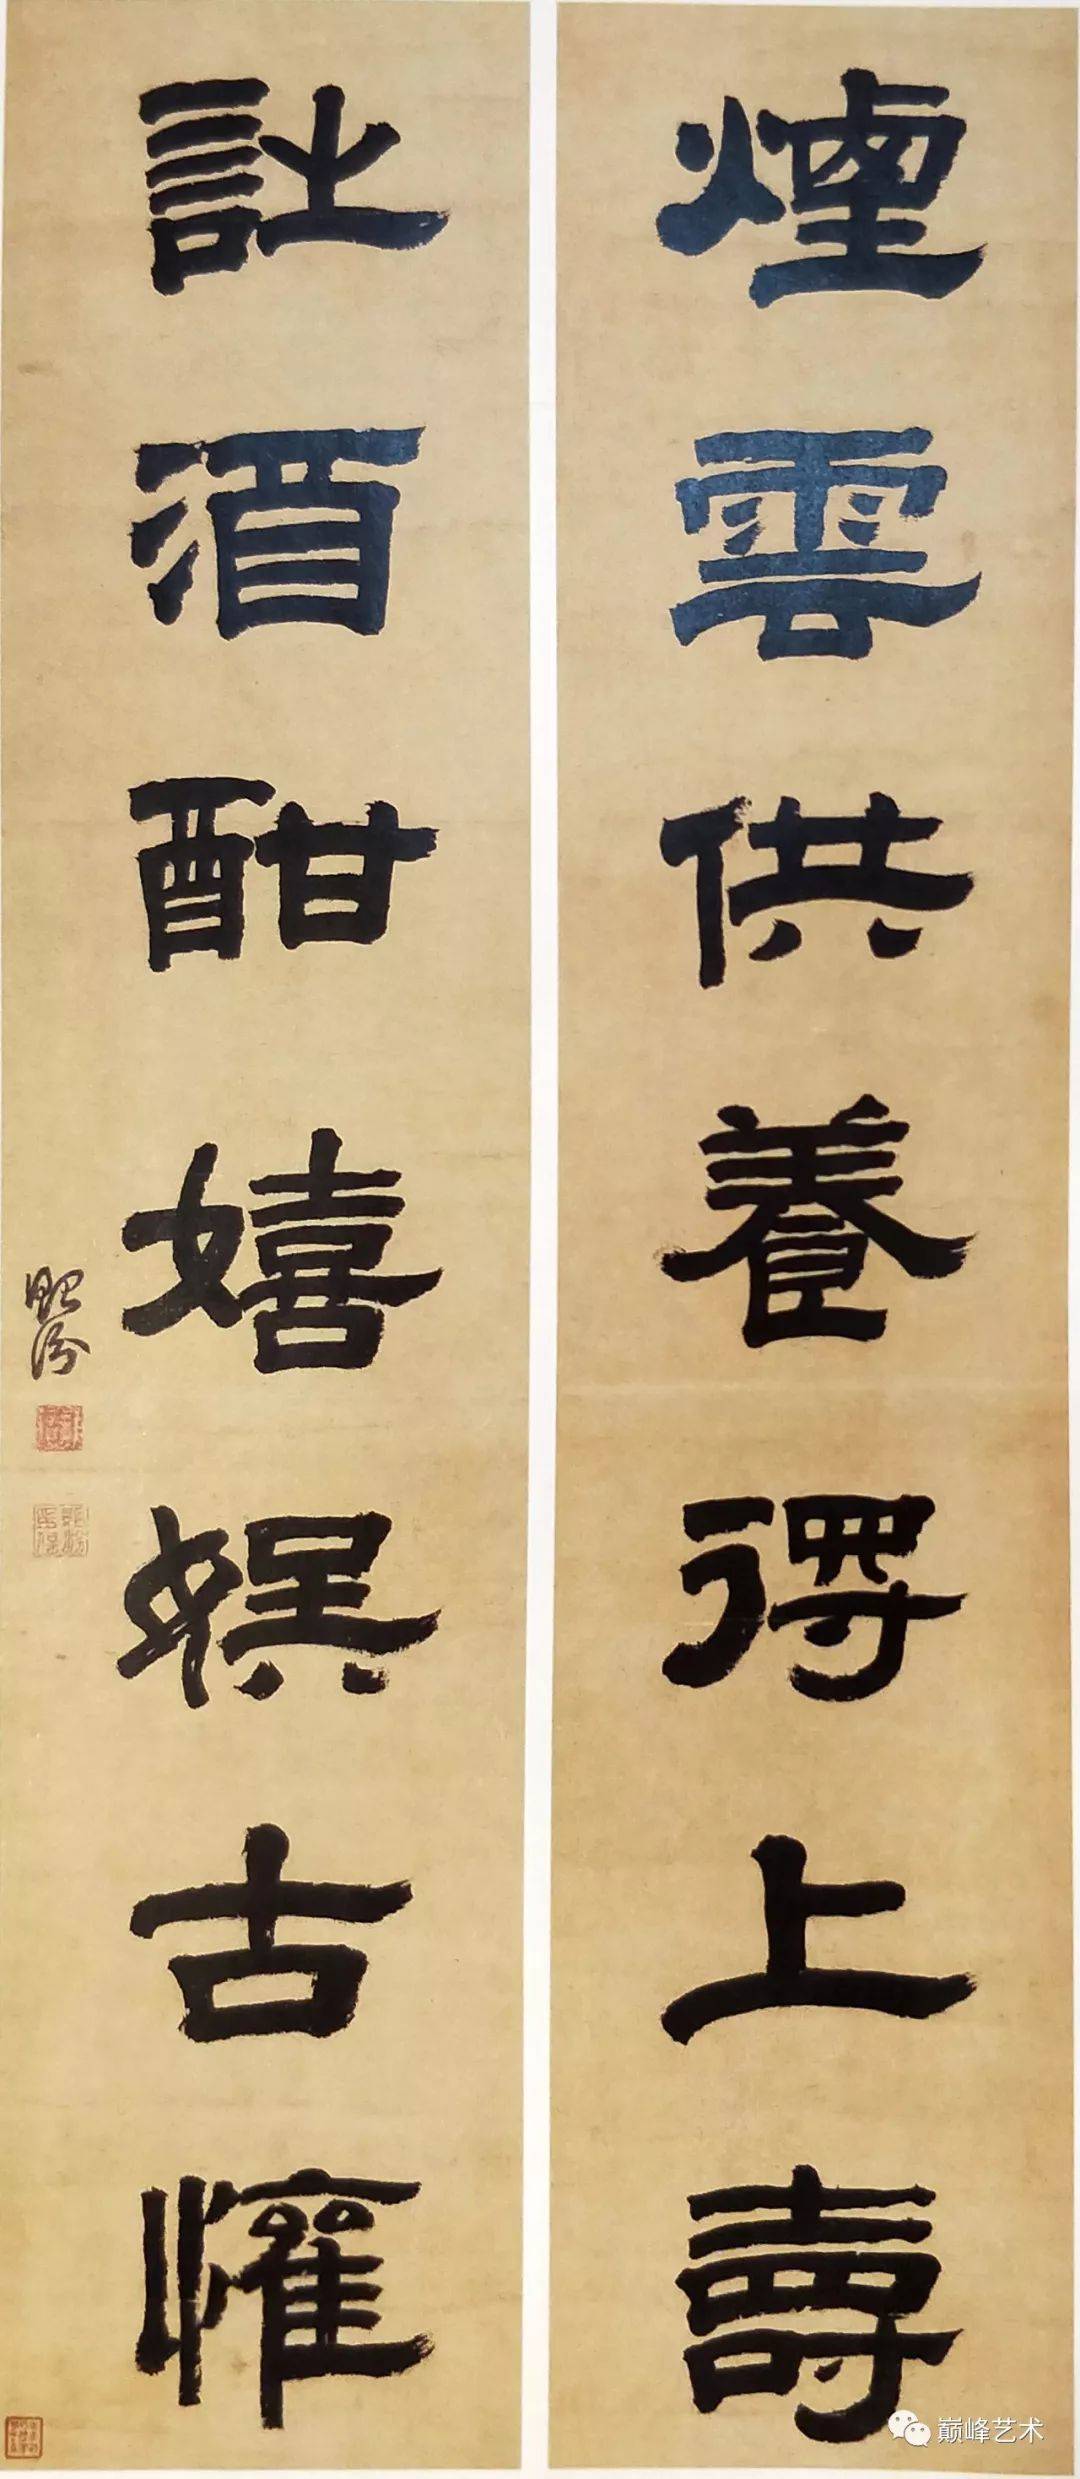 煙雲供養得上壽
詩酒酣嬉娛古懽
巅峰艺术